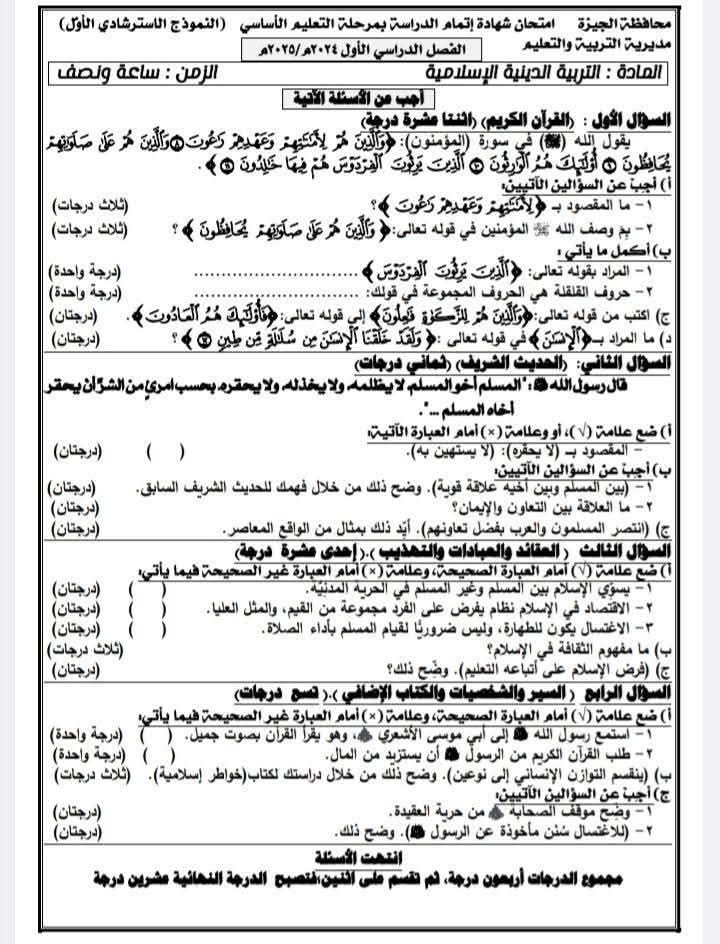 محافظة الجيزة امتحان شهادة إتمام الدراسة بمرحلة التعليم الأساسي (النموذج الاسترشادي الأول)
مديرية التربية والتعليم الفصل الدراسي الأول ٢٠٢٤م/٢٠٢٥م
المادة : التربية الدينية الإسلامية الزمن : ساعة ونصف
أجب عن الأسئلة الآتية
السؤال الأول : (القرآن الكريم) (اثنتا عشرة درجة)
يقول الله (ﷻ) في سورة (المؤمنون): ﴿وَالَّذِينَ هُمْ لِأَمَانَاتِهِمْ وَعَهْدِهِمْ رَاعُونَ ٨ وَالَّذِينَ هُمْ عَلَىٰ صَلَوَاتِهِمْ
يُحَافِظُونَ ٩ أُولَٰئِكَ هُمُ الْوَارِثُونَ ١٠ الَّذِينَ يَرِثُونَ الْفِرْدَوْسَ هُمْ فِيهَا خَالِدُونَ ١١﴾.
أ) أجب عن السؤالين الآتيين:
١- ما المقصود بـ ﴿لِأَمَانَاتِهِمْ وَعَهْدِهِمْ رَاعُونَ﴾؟ (ثلاث درجات)
٢- بم وصف الله ﷻ المؤمنين في قوله تعالى: ﴿وَالَّذِينَ هُمْ عَلَىٰ صَلَوَاتِهِمْ يُحَافِظُونَ﴾ ؟ (ثلاث درجات)
ب) أكمل ما يأتي :
١- المراد بقوله تعالى: ﴿الَّذِينَ يَرِثُونَ الْفِرْدَوْسَ﴾ .............................. (درجة واحدة)
٢- حروف القلقلة هي الحروف المجموعة في قولك: .............................. (درجة واحدة)
ج) اكتب من قوله تعالى: ﴿وَالَّذِينَ هُمْ لِلزَّكَاةِ فَاعِلُونَ﴾ إلى قوله تعالى: ﴿فَأُولَٰئِكَ هُمُ الْعَادُونَ﴾. (درجتان)
د) ما المراد بـ ﴿الْإِنسَانَ﴾ في قوله تعالى: ﴿وَلَقَدْ خَلَقْنَا الْإِنسَانَ مِن سُلَالَةٍ مِّن طِينٍ ١٢﴾ ؟ (درجتان)
السؤال الثاني: (الحديث الشريف) (ثماني درجات)
قال رسول الله ﷺ: "المسلم أخو المسلم، لا يظلمه، ولا يخذله، ولا يحقره، بحسب امرئ من الشر أن يحقر
أخاه المسلم ...".
أ) ضع علامة (√)، أو وعلامة (×) أمام العبارة الآتية:
- المقصود بـ (لا يحقره): (لا يستهين به). ( ) (درجتان)
ب) أجب عن السؤالين الآتيين:
١- (بين المسلم وبين أخيه علاقة قوية). وضح ذلك من خلال فهمك للحديث الشريف السابق. (درجتان)
٢- ما العلاقة بين التعاون والإيمان؟ (درجتان)
ج) (انتصر المسلمون والعرب بفضل تعاونهم). أيّد ذلك بمثال من الواقع المعاصر. (درجتان)
السؤال الثالث (العقائد والعبادات والتهذيب ).( إحدى عشرة درجة)
أ) ضع علامة (√) أمام العبارة الصحيحة، وعلامة (×) أمام العبارة غير الصحيحة فيما يأتي:
١- يسوّي الإسلام بين المسلم وغير المسلم في الحرية المدنيّة. ( ) (درجتان)
٢- الاقتصاد في الإسلام نظام يفرض على الفرد مجموعة من القيم، والمثل العليا. ( ) (درجتان)
٣- الاغتسال يكون للطهارة، وليس ضروريًا لقيام المسلم بأداء الصلاة. ( ) (درجتان)
ب) ما مفهوم الثقافة في الإسلام؟ (ثلاث درجات)
ج) (فرض الإسلام على أتباعه التعليم). وضّح ذلك؟ (درجتان)
السؤال الرابع ( السير والشخصيات والكتاب الإضافي ).( تسع درجات)
أ) ضع علامة (√) أمام العبارة الصحيحة، وعلامة (×) أمام العبارة غير الصحيحة فيما يأتي:
١- استمع رسول الله ﷺ إلى أبي موسى الأشعري ﷺ، وهو يقرأ القرآن بصوت جميل. ( ) (درجة واحدة)
٢- طلب القرآن الكريم من الرسول ﷺ أن يستزيد من المال. ( ) (درجة واحدة)
ب) (ينقسم التوازن الإنساني إلى نوعين). وضح ذلك من خلال دراستك لكتاب(خواطر إسلامية). (ثلاث درجات)
ج) أجب عن السؤالين الآتيين:
١- وضح موقف الصحابة من حرية العقيدة. (درجتان)
٢- (للاغتسال سُنن مأخوذة عن الرسول ﷺ). وضح ذلك. (درجتان)
إنتهت الأسئلة
مجموع الدرجات أربعون درجة، ثم تقسم على اثنين،فتصبح الدرجة النهائية عشرين درجة